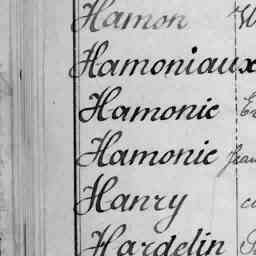 Hamon
Hamoniaux
Hamonic
Hamonic Jean
Hanry
Hardelin